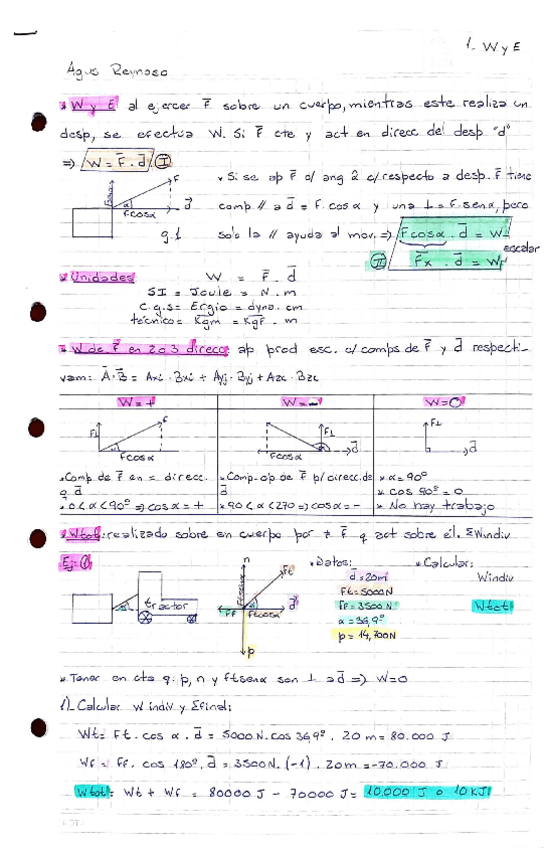 1- W y E
Agus Reynoso
* W y E al ejercer F̄ sobre un cuerpo, mientras este realiza un
desp, se efectúa W. Si F̄ cte y act en direcc del desp "d"
⇒ W = F̄ . d̄ (I)
* Si se ap F̄ c/ ang 2 c/respecto a desp. F̄ tiene
F
α
d̄
Fcosα
comp // a d̄ = F. cos α y una ⊥ = F. sen α, pero
g.1
solo la // ayuda al mov. ⇒ Fcosα . d̄ = W
escalar
(II) F̄x . d̄ = WF
* Unidades W = F̄ . d̄
SI = Joule = N . m
c.g.s = Ergio = dyna. cm
técnico = Kgm = KgF . m
* W de F̄ en 2 o 3 direcc. ap prod esc. c/ comps de F̄ y d̄ respecti-
vam: Ā . B̄ = Axi . Bxi + Ayj . Byj + Azk . Bzk
W = + W = - W = 0
F⊥ F F⊥
Fcosα Fcosα d̄ d̄
* Comp. de F̄ en = direcc. * Comp. op. de F̄ p/ direcc. de * α = 90°
q d̄ d̄ * cos 90° = 0
* 0 < α < 90° ⇒ cosα = + * 90 < α < 270 ⇒ cosα = - * No hay trabajo
* Wtot: realizado sobre en cuerpo por ≠ F̄ q act sobre él. ΣWindiv
Ej: (1) n Ft * Datos: * Calcular:
d̄ = 20m Windiv
tractor FF Ftcosα d̄ Ft = 5000N
FF = 3500 N Wtot
α = 36,9°
p p = 14,700N
* Tener en cta q: p, n y ftsenα son ⊥ a d̄ ⇒ W = 0
1)_ Calcular W indiv y Σfinal:
Wt = Ft . cos α . d̄ = 5000 N. cos 36,9° . 20 m = 80.000 J
Wf = Ff. cos 180°. d̄ = 3500N. (-1) . 20m = -70.000 J
Wtot = Wt + Wf = 80000 J - 70000 J = 10.000 J o 10 KJ